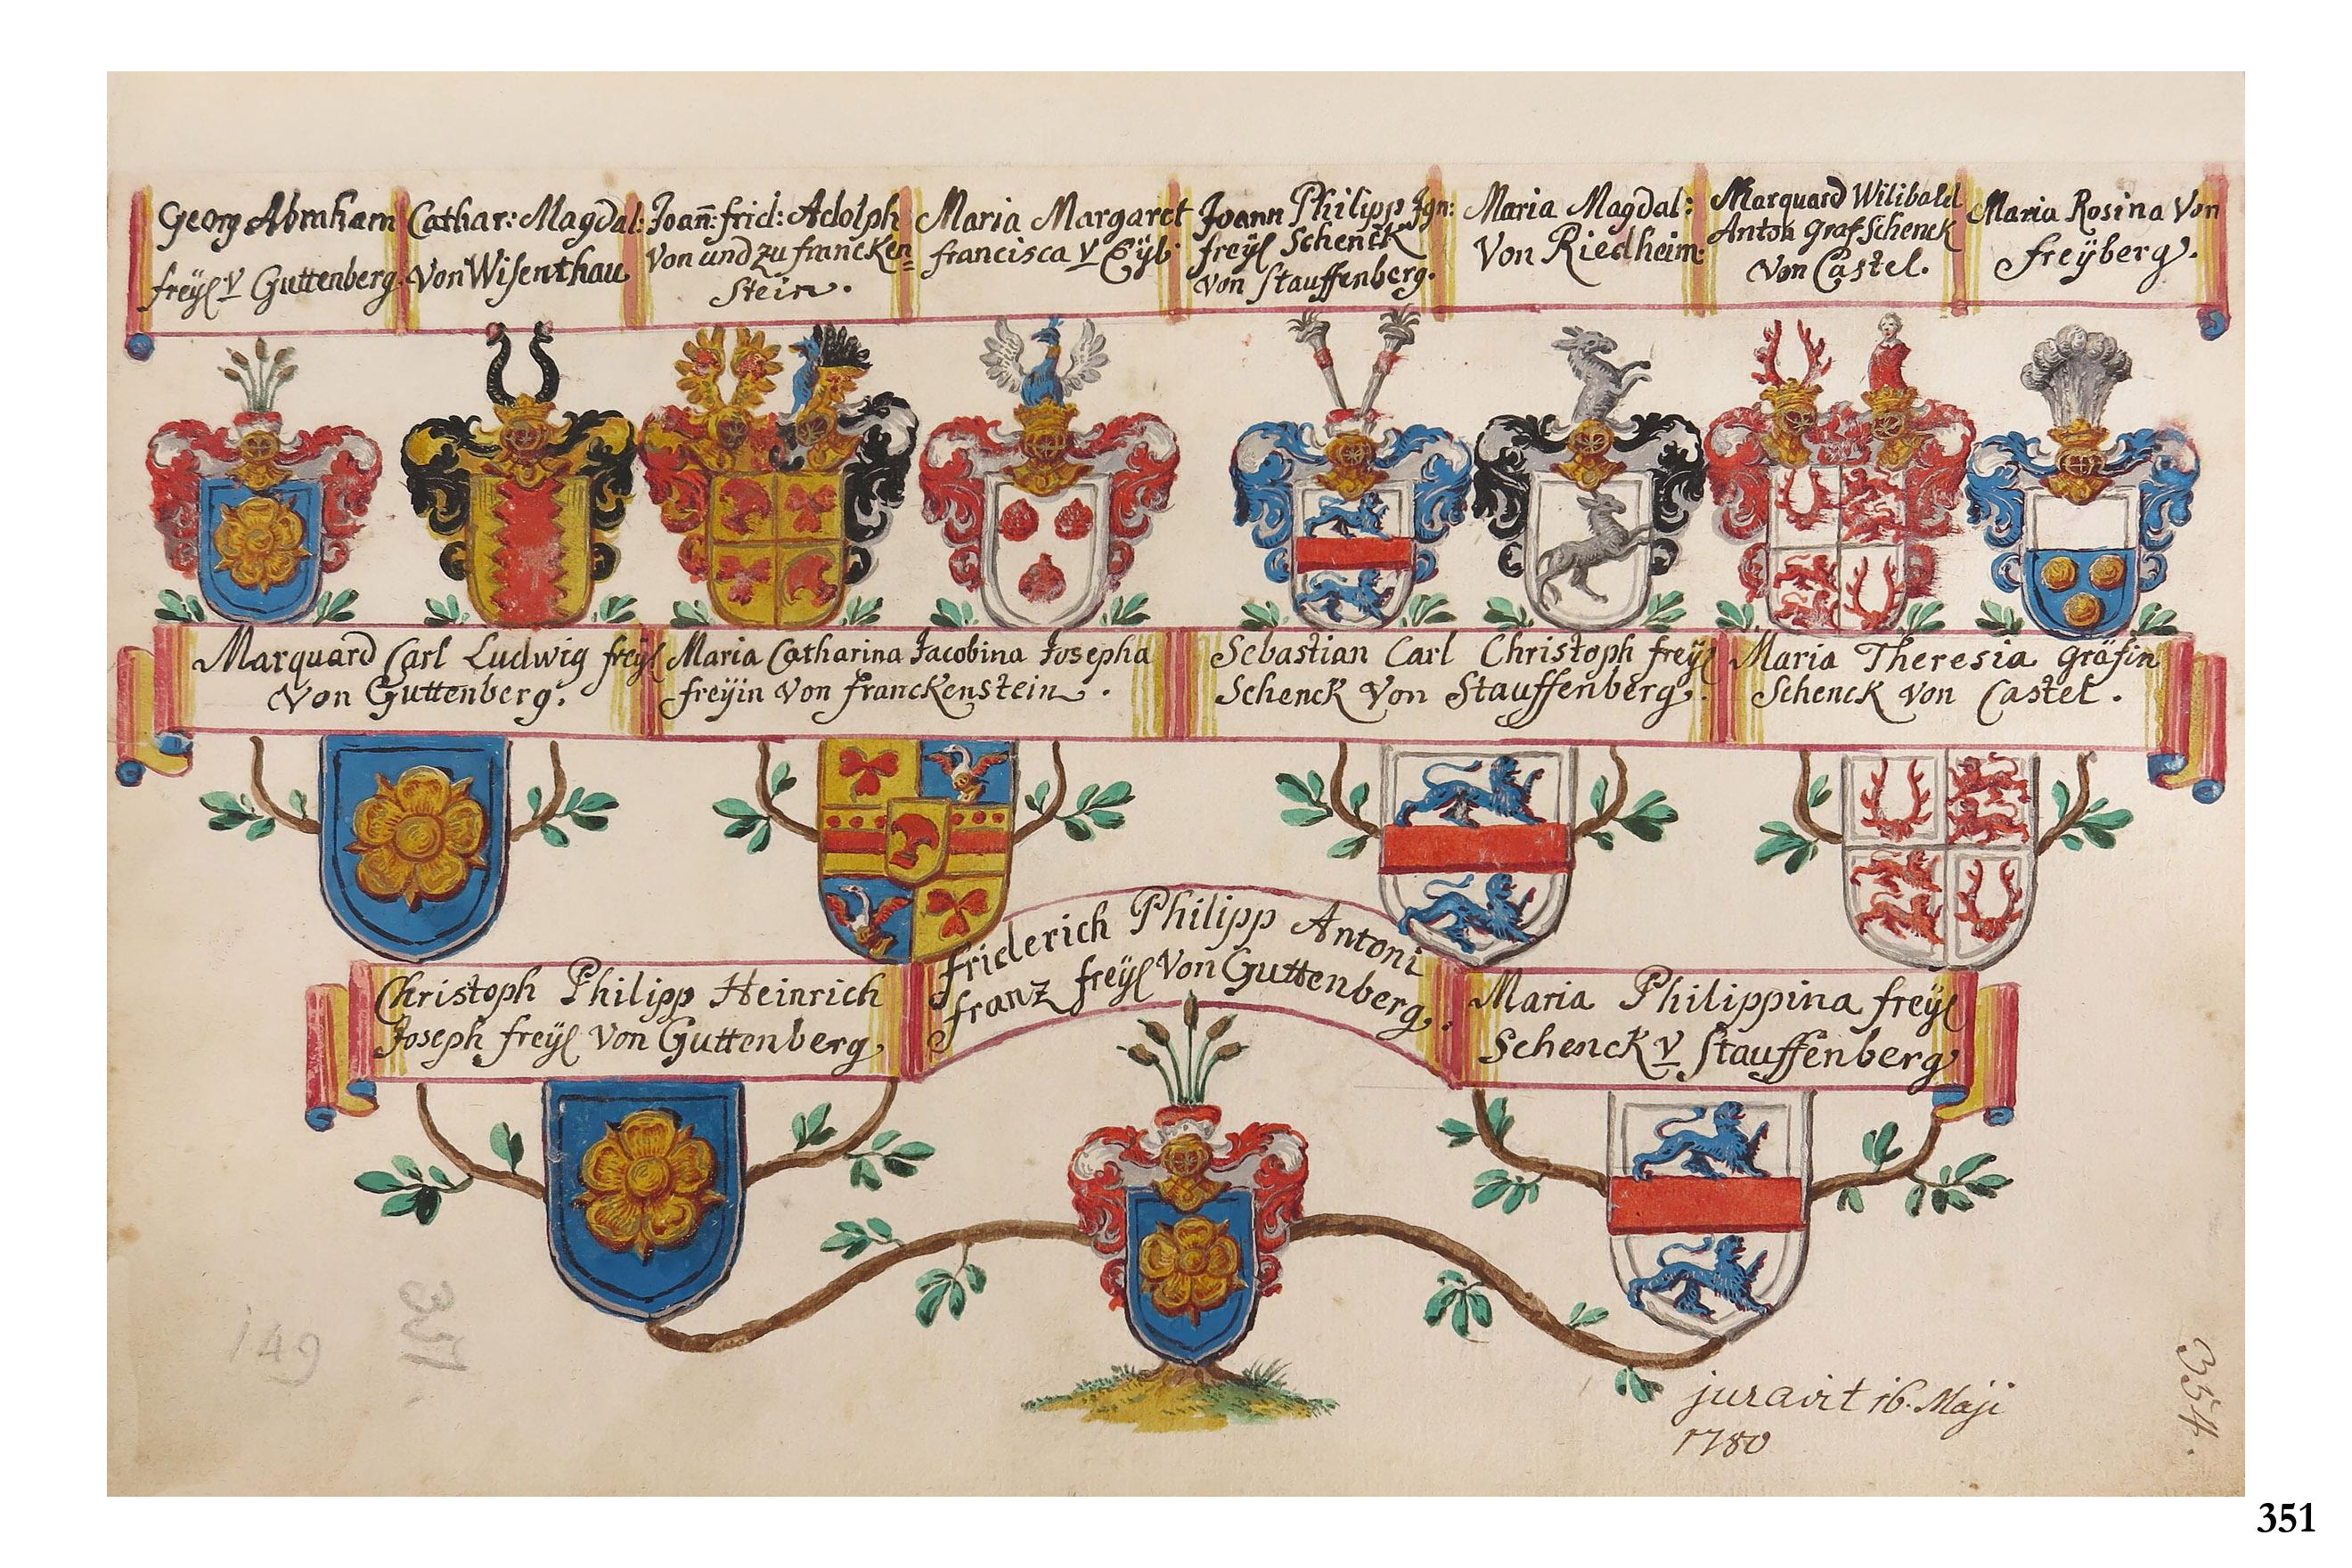 Georg Abraham
freÿl v Guttenberg.
Cathar: Magdal:
Von Wisenthau
Joan̄: frid: Adolph
Von und zu francken=
Stein.
Maria Margaret
francisca v Eÿb:
Joann Philipp Ign:
freÿl Schenck
von Stauffenberg.
Maria Magdal:
Von Riedheim.
Marquard Wilibald
Anton Graf Schenck
Von Castel.
Maria Rosina Von
freÿberg.
Marquard Carl Ludwig freÿl
Von Guttenberg.
Maria Catharina Jacobina Josepha
freÿin von franckenstein.
Sebastian Carl Christoph freÿl
Schenck Von Stauffenberg.
Maria Theresia gräfin
Schenck von Castel.
Christoph Philipp Heinrich
Joseph freÿl Von Guttenberg
friderich Philipp Antoni
franz freÿl Von Guttenberg.
Maria Philippina freÿl
Schenck v Stauffenberg
149
351
juravit 16. Maji
1780
354.
351